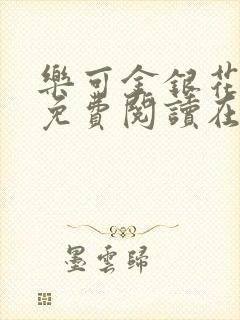 樂可金銀花
免費閱讀在
墨雲歸